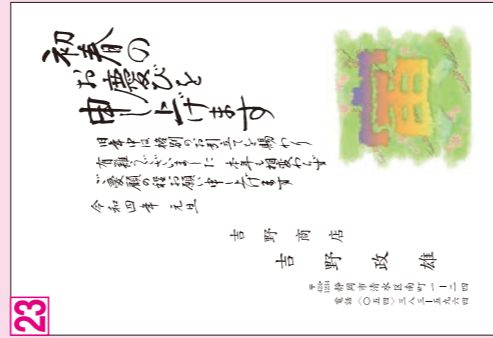 初春の
お慶びを
申し上げます
旧年中は格別のお引立てを賜わり
有難うございました 本年も相変わらず
ご愛顧の程お願い申し上げます
令和四年 元旦
吉野商店
吉野政雄
静岡市清水区南町一ー二四
電話〈〇五四〉三八三ー五九六四
23